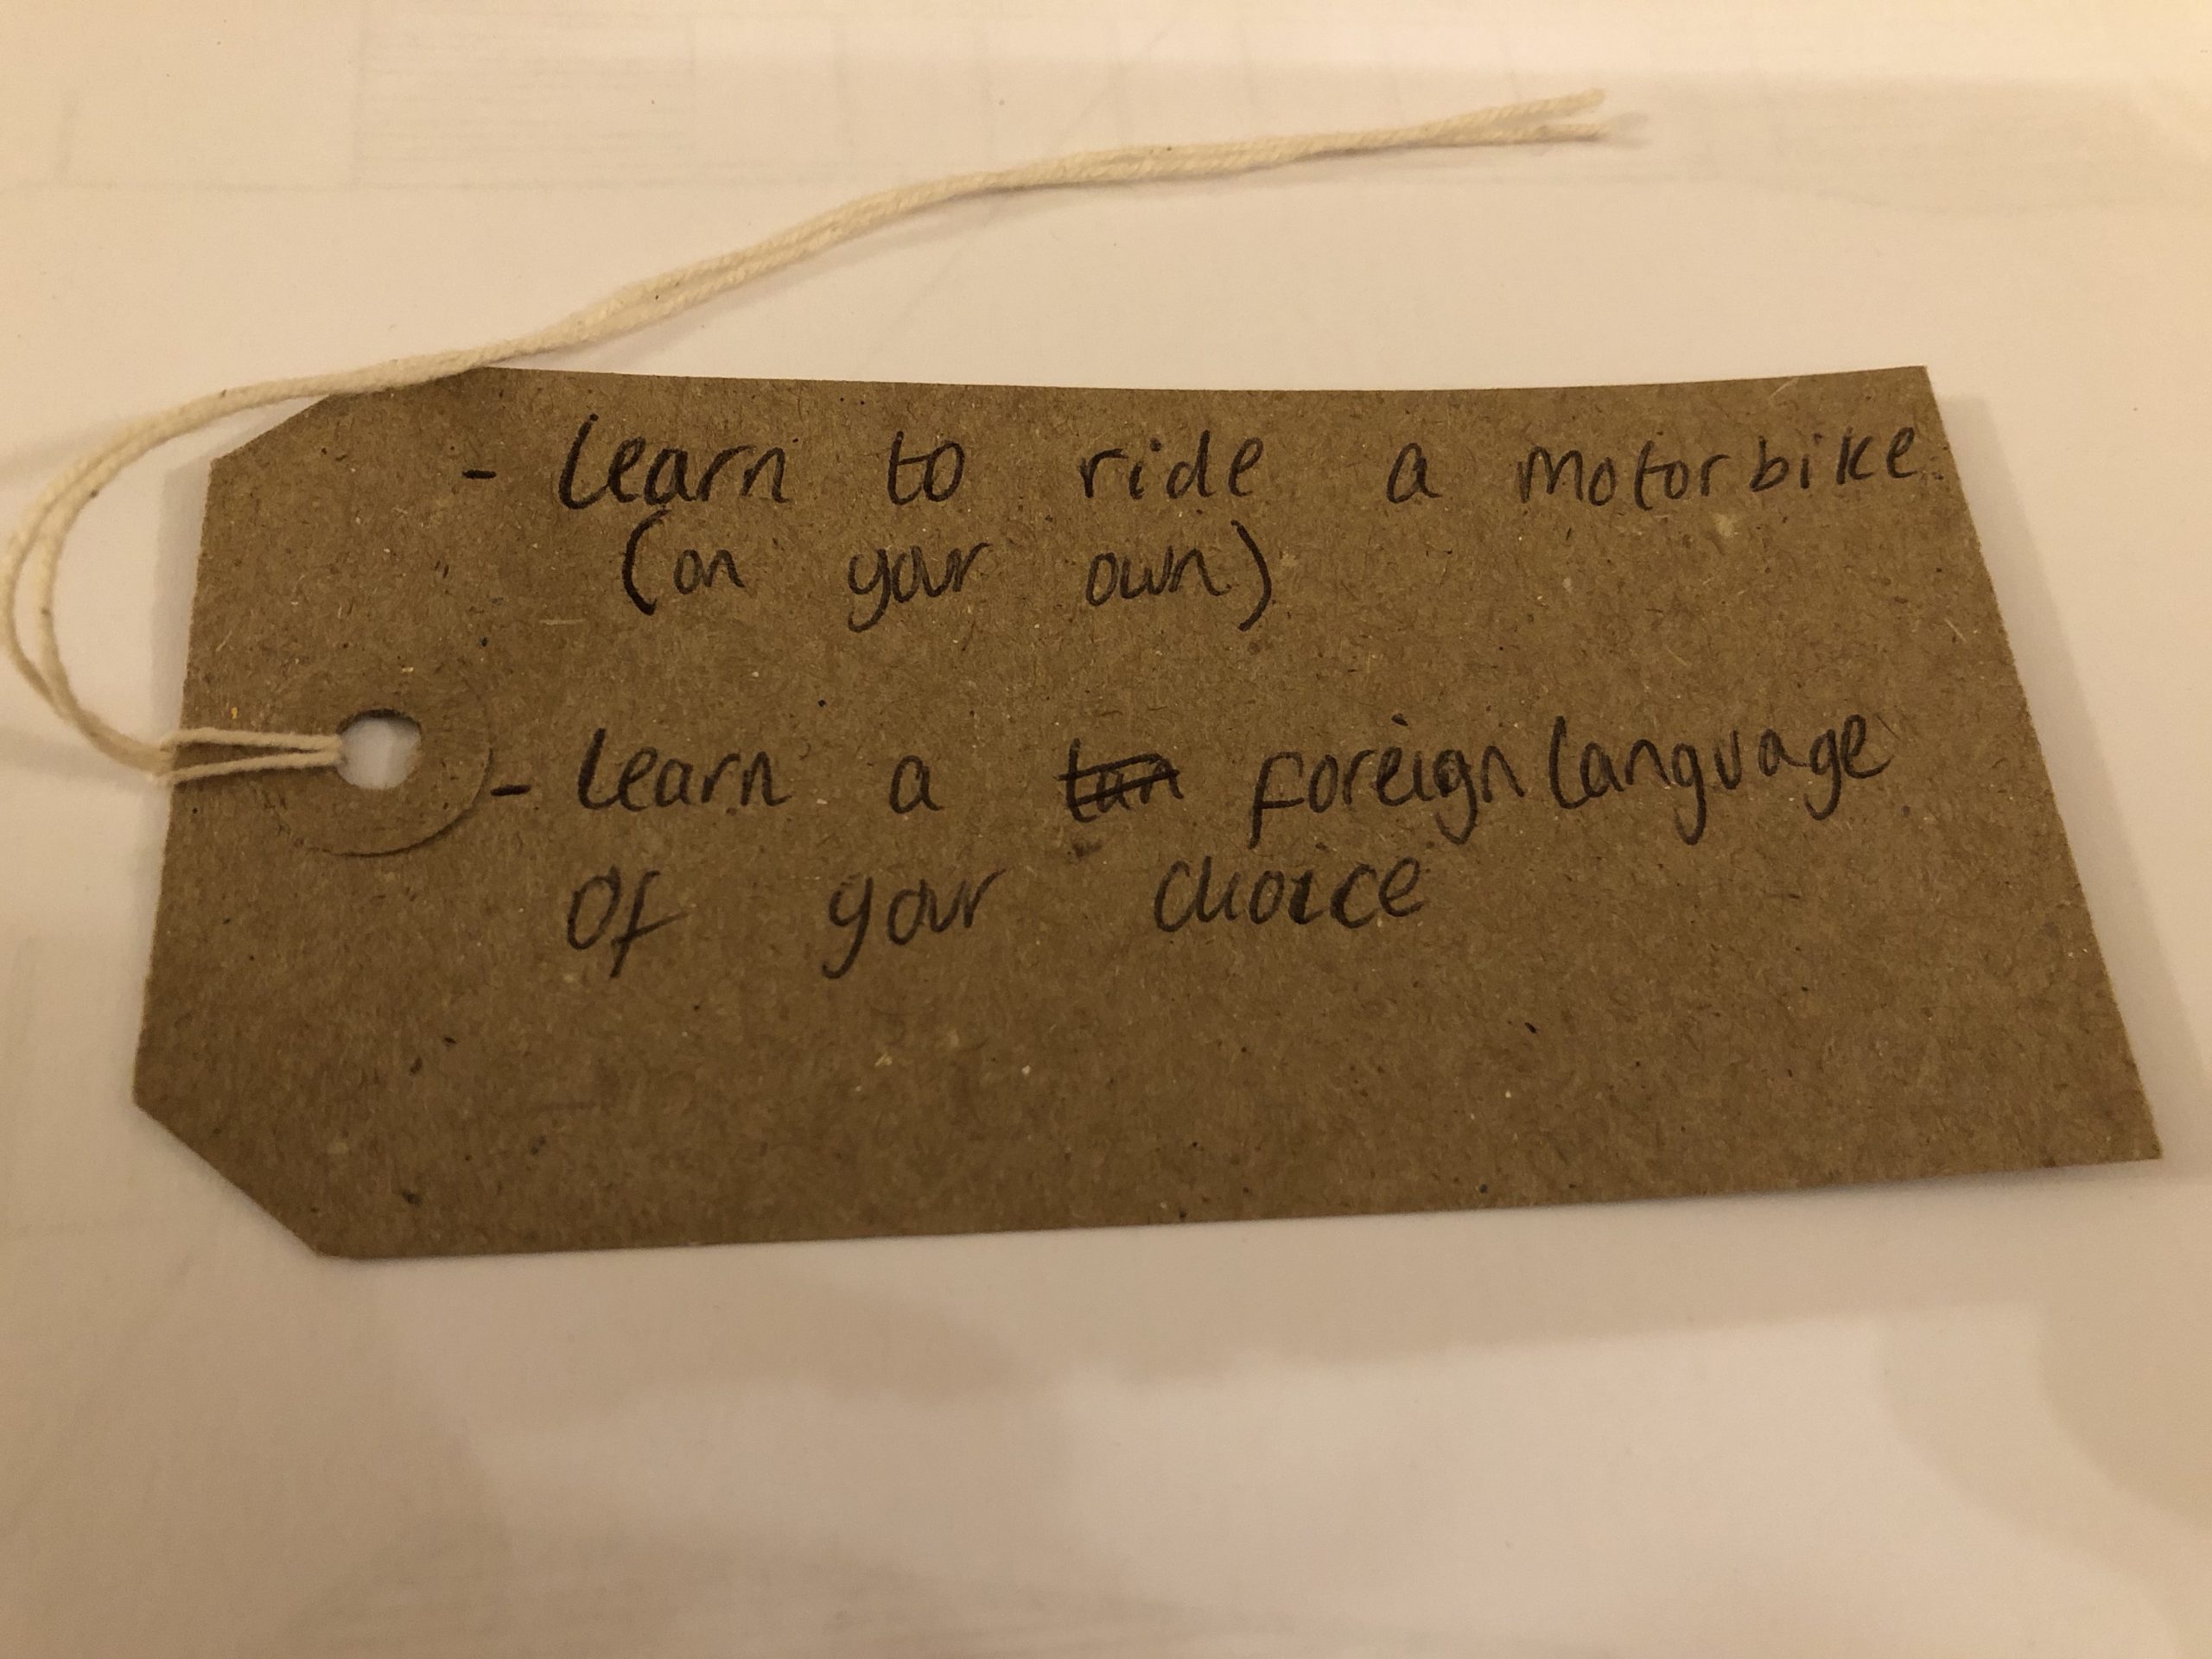 - Learn to ride a motorbike
(on your own)
- Learn a foreign language
of your choice